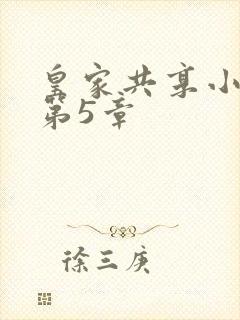 皇家共享小
第5章
徐三庚